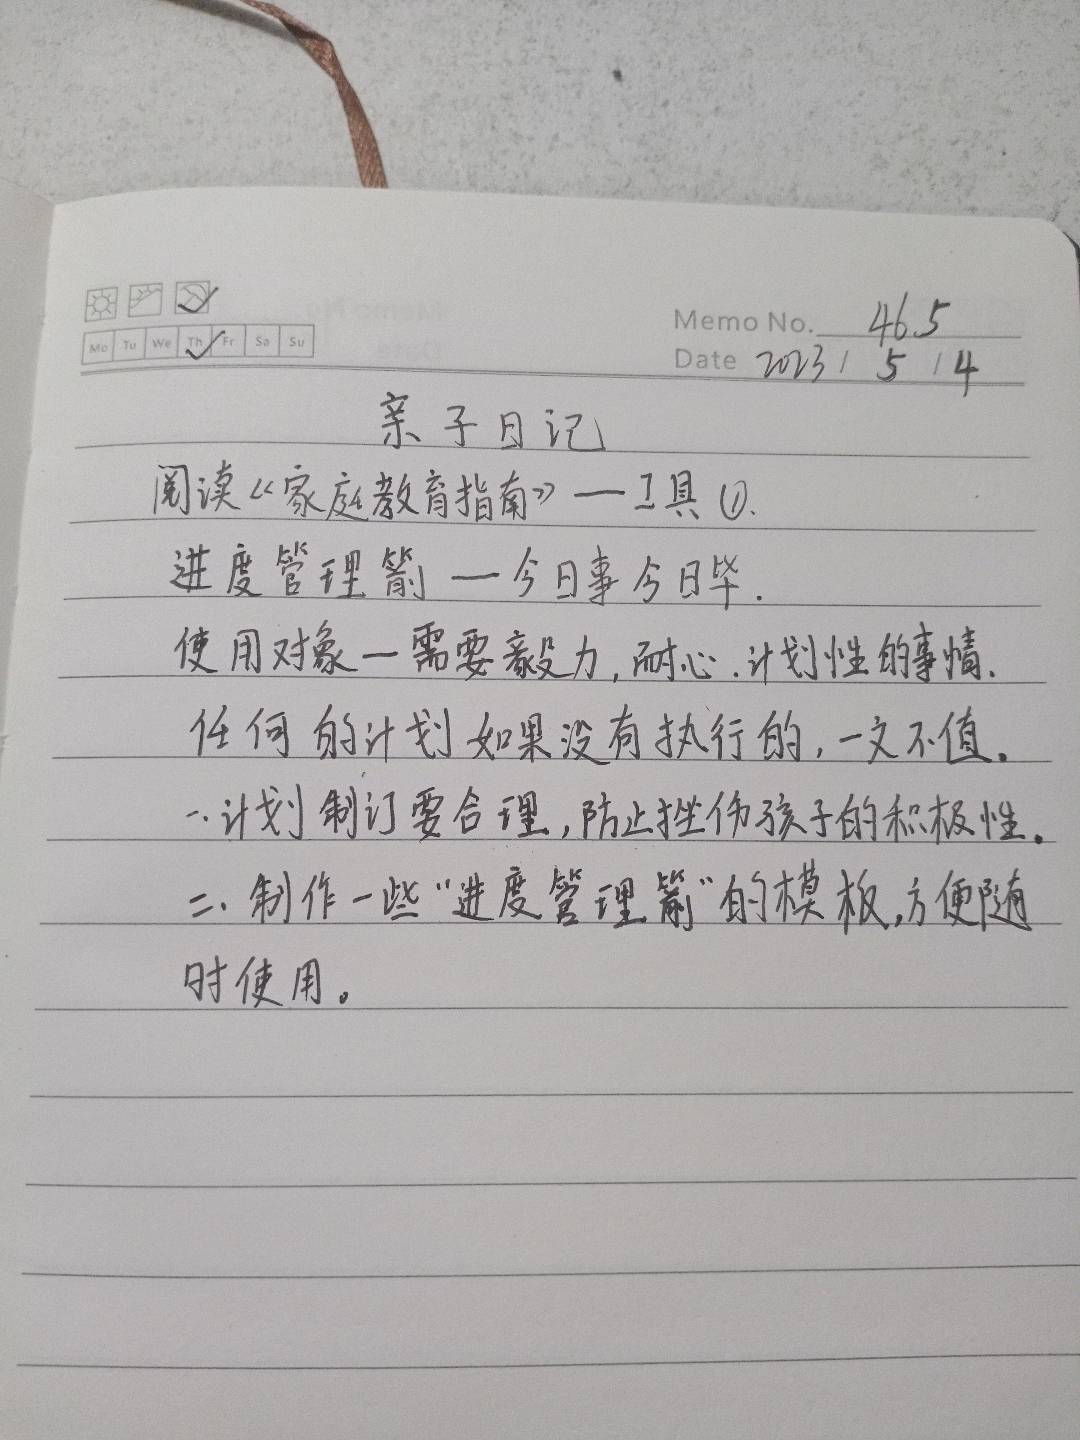 Memo No. 465
Mo Tu We Th Fr Sa Su
Date 2023 / 5 / 4
亲子日记
阅读《家庭教育指南》—工具①.
进度管理箭—今日事今日毕.
使用对象—需要毅力,耐心.计划性的事情.
任何的计划如果没有执行的,一文不值。
一.计划制订要合理,防止挫伤孩子的积极性。
二、制作一些“进度管理箭”的模板,方便随
时使用。